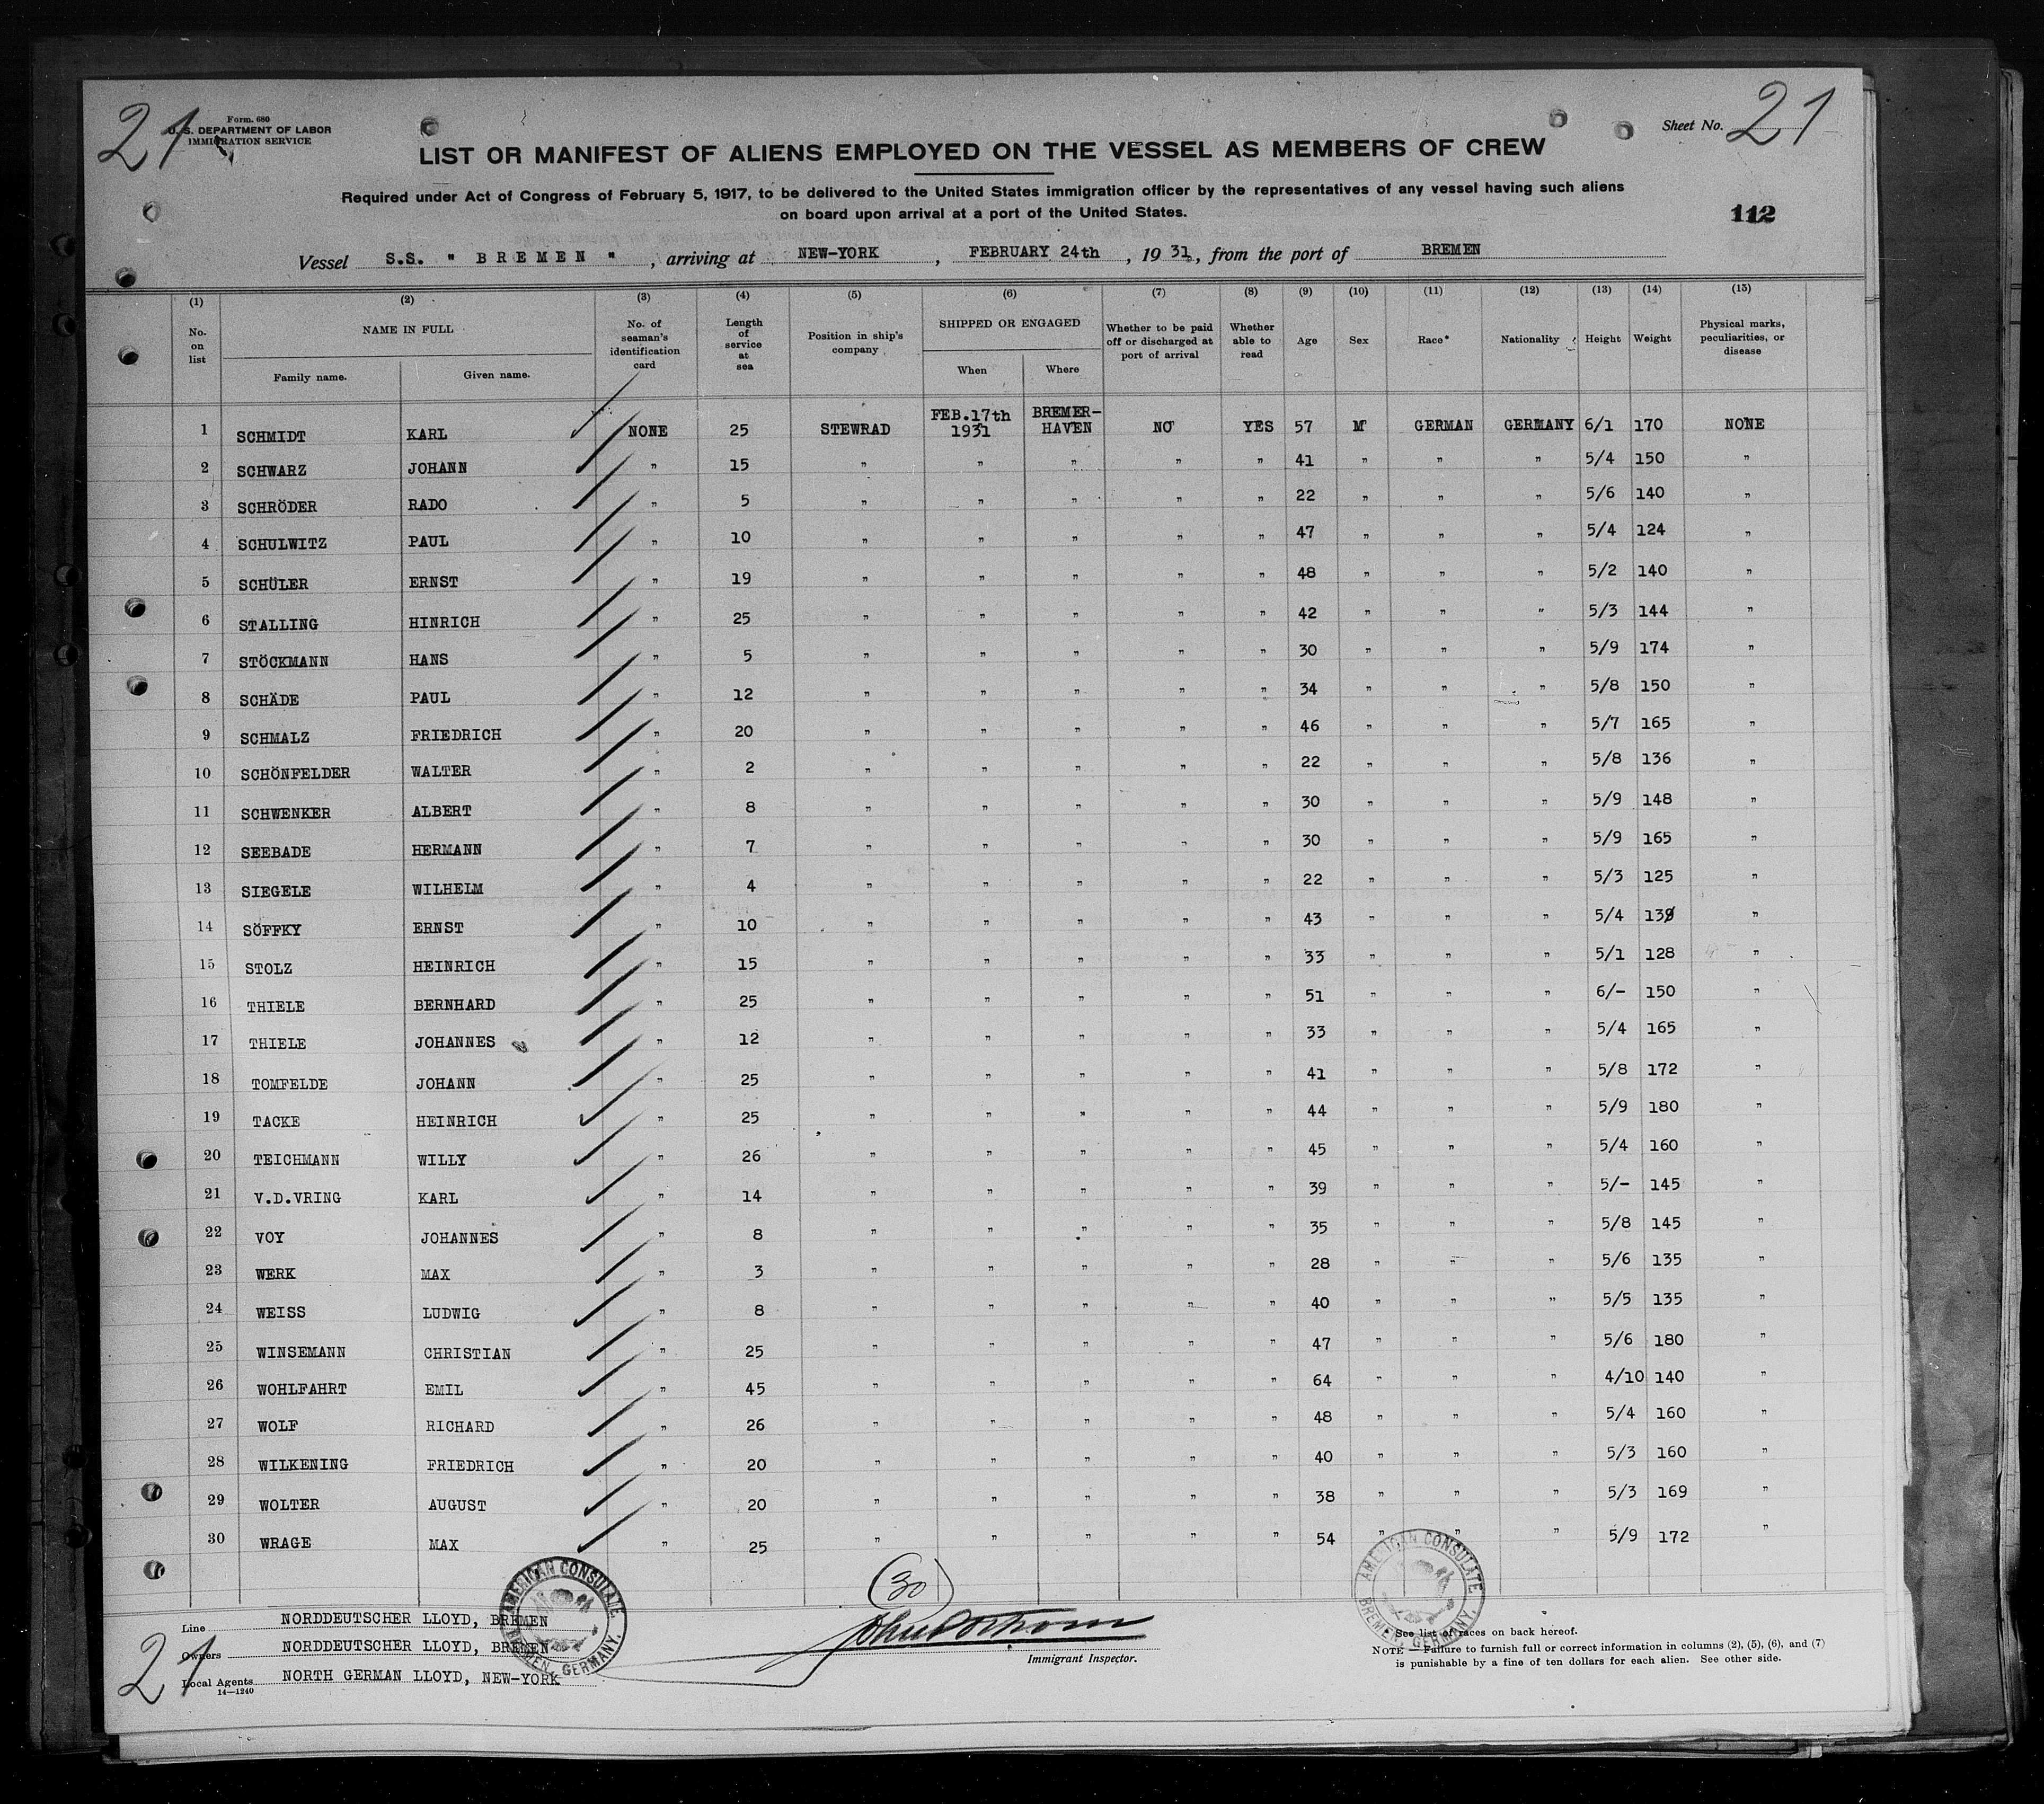 21
Form. 680
U. S. DEPARTMENT OF LABOR
IMMIGRATION SERVICE
Sheet No. 21
LIST OR MANIFEST OF ALIENS EMPLOYED ON THE VESSEL AS MEMBERS OF CREW
Required under Act of Congress of February 5, 1917, to be delivered to the United States immigration officer by the representatives of any vessel having such aliens
on board upon arrival at a port of the United States.
112
Vessel S.S. " BREMEN ", arriving at NEW-YORK, FEBRUARY 24th, 1931, from the port of BREMEN
(1) (2) (3) (4) (5) (6) (7) (8) (9) (10) (11) (12) (13) (14) (15)
No. on list NAME IN FULL Family name. Given name. No. of seaman's identification card Length of service at sea Position in ship's company SHIPPED OR ENGAGED When Where Whether to be paid off or discharged at port of arrival Whether able to read Age Sex Race* Nationality Height Weight Physical marks, peculiarities, or disease
1 SCHMIDT KARL NONE 25 STEWRAD FEB.17th 1931 BREMER-HAVEN NO YES 57 M GERMAN GERMANY 6/1 170 NONE
2 SCHWARZ JOHANN " 15 " " " " " 41 " " " 5/4 150 "
3 SCHRÖDER RADO " 5 " " " " " 22 " " " 5/6 140 "
4 SCHULWITZ PAUL " 10 " " " " " 47 " " " 5/4 124 "
5 SCHÜLER ERNST " 19 " " " " " 48 " " " 5/2 140 "
6 STALLING HINRICH " 25 " " " " " 42 " " " 5/3 144 "
7 STÖCKMANN HANS " 5 " " " " " 30 " " " 5/9 174 "
8 SCHÄDE PAUL " 12 " " " " " 34 " " " 5/8 150 "
9 SCHMALZ FRIEDRICH " 20 " " " " " 46 " " " 5/7 165 "
10 SCHÖNFELDER WALTER " 2 " " " " " 22 " " " 5/8 136 "
11 SCHWENKER ALBERT " 8 " " " " " 30 " " " 5/9 148 "
12 SEEBADE HERMANN " 7 " " " " " 30 " " " 5/9 165 "
13 SIEGELE WILHELM " 4 " " " " " 22 " " " 5/3 125 "
14 SÖFFKY ERNST " 10 " " " " " 43 " " " 5/4 139 "
15 STOLZ HEINRICH " 15 " " " " " 33 " " " 5/1 128 "
16 THIELE BERNHARD " 25 " " " " " 51 " " " 6/- 150 "
17 THIELE JOHANNES " 12 " " " " " 33 " " " 5/4 165 "
18 TOMFELDE JOHANN " 25 " " " " " 41 " " " 5/8 172 "
19 TACKE HEINRICH " 25 " " " " " 44 " " " 5/9 180 "
20 TEICHMANN WILLY " 26 " " " " " 45 " " " 5/4 160 "
21 V.D.VRING KARL " 14 " " " " " 39 " " " 5/- 145 "
22 VOY JOHANNES " 8 " " " " " 35 " " " 5/8 145 "
23 WERK MAX " 3 " " " " " 28 " " " 5/6 135 "
24 WEISS LUDWIG " 8 " " " " " 40 " " " 5/5 135 "
25 WINSEMANN CHRISTIAN " 25 " " " " " 47 " " " 5/6 180 "
26 WOHLFAHRT EMIL " 45 " " " " " 64 " " " 4/10 140 "
27 WOLF RICHARD " 26 " " " " " 48 " " " 5/4 160 "
28 WILKENING FRIEDRICH " 20 " " " " " 40 " " " 5/3 160 "
29 WOLTER AUGUST " 20 " " " " " 38 " " " 5/3 169 "
30 WRAGE MAX " 25 " " " " " 54 " " " 5/9 172 "
(30)
AMERICAN CONSULATE
BREMEN, GERMANY.
AMERICAN CONSULATE
BREMEN, GERMANY.
Line NORDDEUTSCHER LLOYD, BREMEN
Owners NORDDEUTSCHER LLOYD, BREMEN
Local Agents NORTH GERMAN LLOYD, NEW-YORK
14—1240
21
Immigrant Inspector.
* See list of races on back hereof.
NOTE.—Failure to furnish full or correct information in columns (2), (5), (6), and (7)
is punishable by a fine of ten dollars for each alien. See other side.